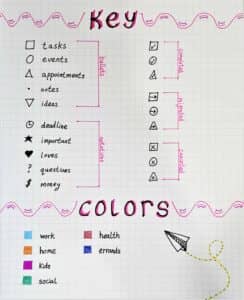 Key
tasks
events
appointments
notes
ideas
bullets
deadline
important
loves
? questions
$ money
completed
migrated
canceled
colors
work
home
kids
social
health
errands